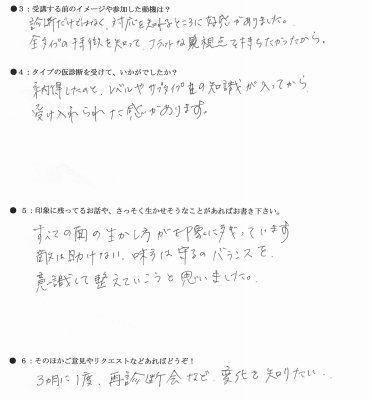 ● 3：受講する前のイメージや参加した動機は？
診断だけではなく、対応を知れるところに好感がありました。
全タイプの特徴を知って、フラットな視点を持ちたかったから。
● 4：タイプの仮診断を受けて、いかがでしたか？
納得したのと、レベルやサブタイプ の知識が入ってから
受け入れられた感があります。
● 5：印象に残ってるお話や、さっそく生かせそうなことがあればお書き下さい。
すべての面の生かし方が印象に残っています
敵は助けない、味方は守るのバランスを、
意識して整えていこうと思いました。
● 6：そのほかご意見やリクエストなどあればどうぞ！
3カ月に1度、再診断会など、変化を知りたい..